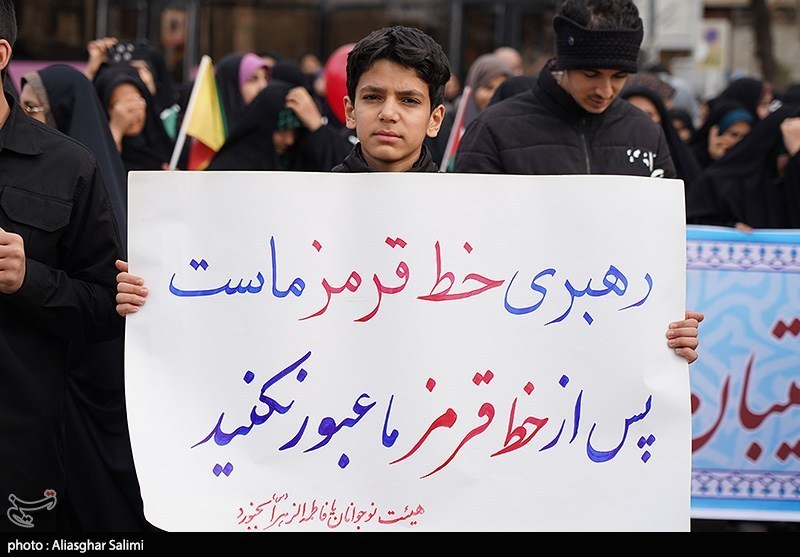 رهبری خط قرمز ماست
پس از خط قرمز ما عبور نکنید
هیئت نوجوانان یا فاطمة الزهرا (س) بجنورد
تسنیم
photo : Aliasghar Salimi